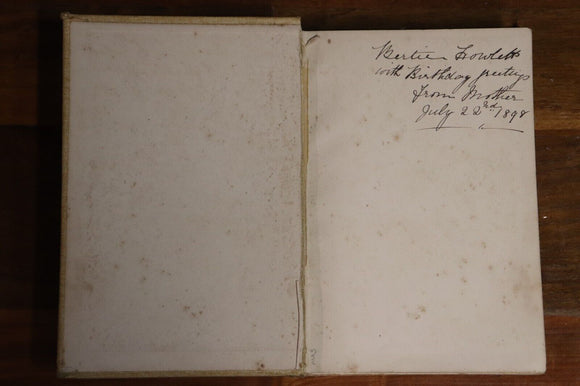 Bertie Howlett
with Birthday greetings
from Mother
July 22nd 1898